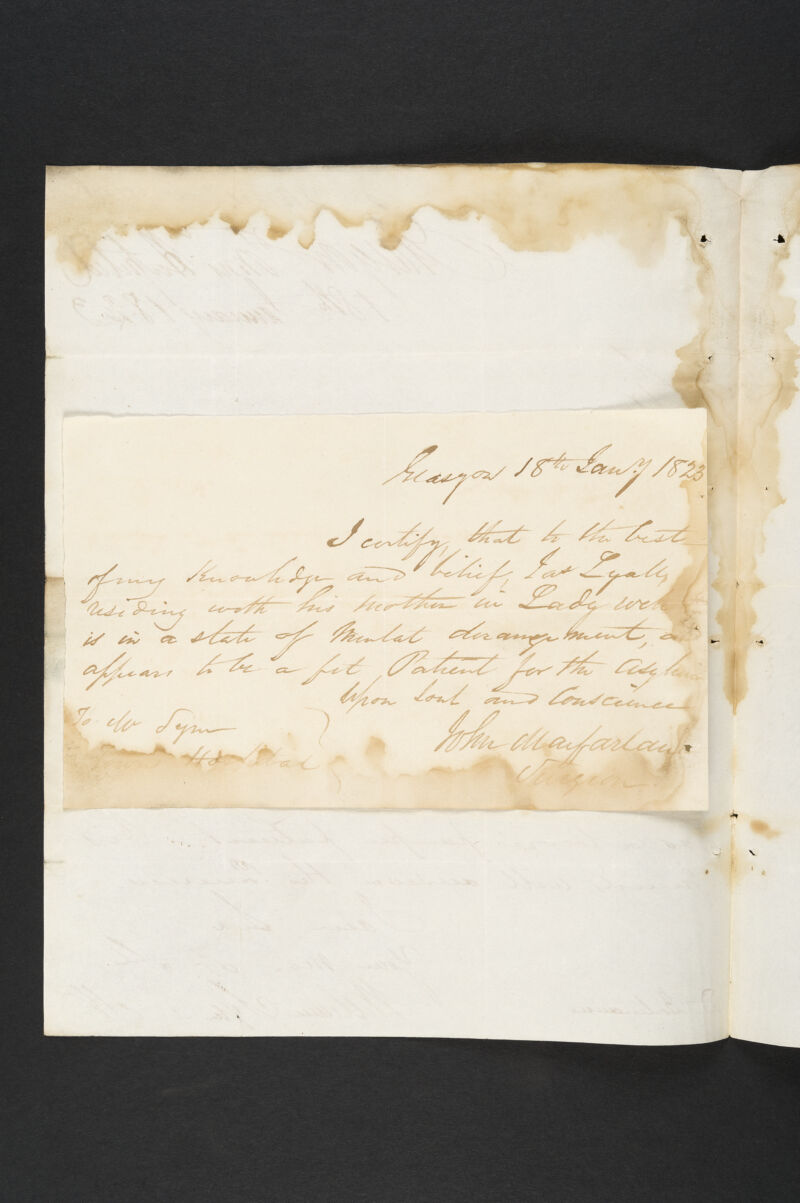 Glasgow 18th Jany 1823
I certify, that to the best
of my Knowledge and belief, Jas Lyall,
residing with his mother in Lady well
is in a state of Mental derangement, a
appears to be a fit Patient for the Asylum
Upon Soul and Conscience
To Mr Sym
John Macfarlan
Hospital
Surgeon